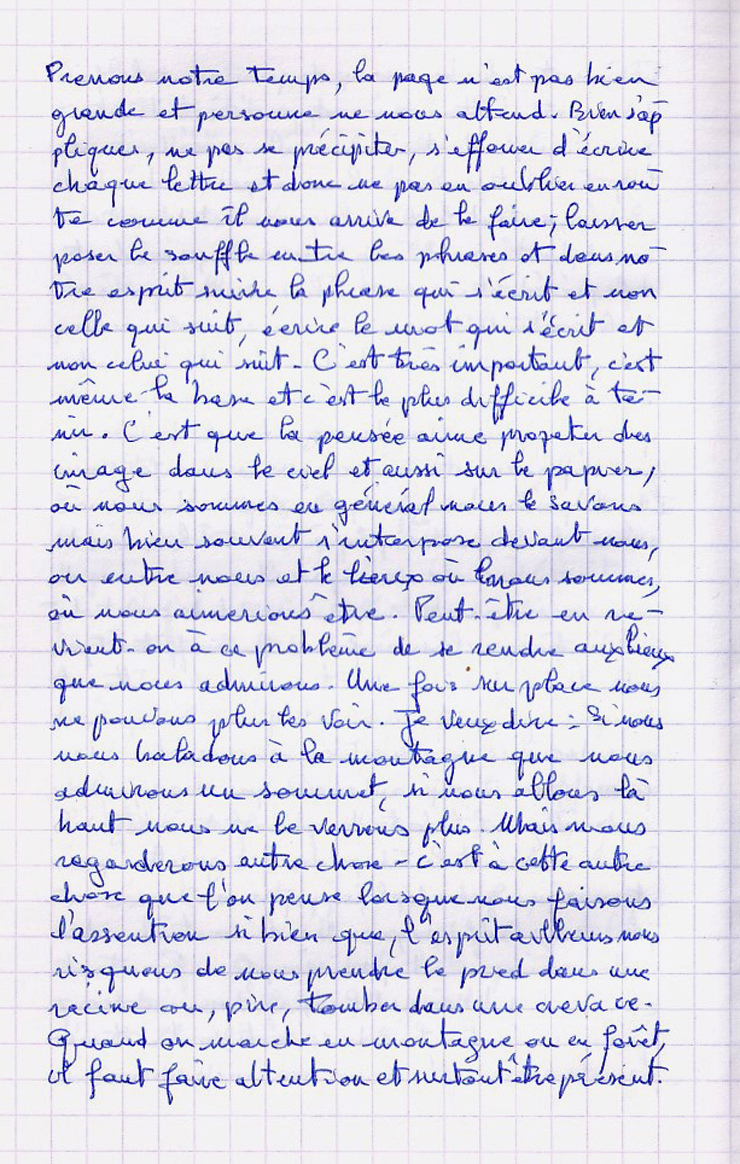 Prenons notre temps, la page n'est pas bien
grande et personne ne nous attend. Bien s'ap
pliquer, ne pas se précipiter, s'efforcer d'écrire
chaque lettre et donc ne pas en oublier en rou
te comme il nous arrive de le faire ; laisser
poser le souffle entre les phrases et dans no-
tre esprit suivre la phrase qui s'écrit et non
celle qui suit, écrire le mot qui s'écrit et
non celui qui suit - C'est très important, c'est
même la base et c'est le plus difficile à te-
nir. C'est que la pensée aime projeter des
image dans le ciel et aussi sur le papier,
où nous sommes en général nous le savons
mais bien souvent s'interpose devant nous,
ou entre nous et le lieux où nous sommes,
où nous aimerions être. Peut-être en re-
vient-on à ce problème de se rendre aux lieux
que nous admirons. Une fois sur place nous
ne pouvons plus les voir. Je veux dire : Si nous
nous baladons à la montagne que nous
admirons un sommet, si nous allons là
haut nous ne le verrons plus. Mais nous
regarderons autre chose - c'est à cette autre
chose que l'on pense lorsque nous faisons
l'assention si bien que, l'esprit ailleurs nous
risquons de nous prendre le pied dans une
racine ou, pire, tomber dans une crevace.
Quand on marche en montagne ou en forêt,
il faut faire attention et surtout être présent.